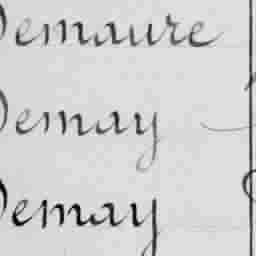 Demaure
Demay
Demay